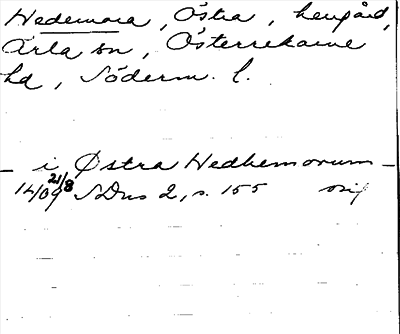 Hedemora, Östra, herrgård,
Ärla sn, Österrekarne
hd, Söderm. l.
— i Østra Hedhemorum —
14/09 21/8 SDns 2, s. 155 orig